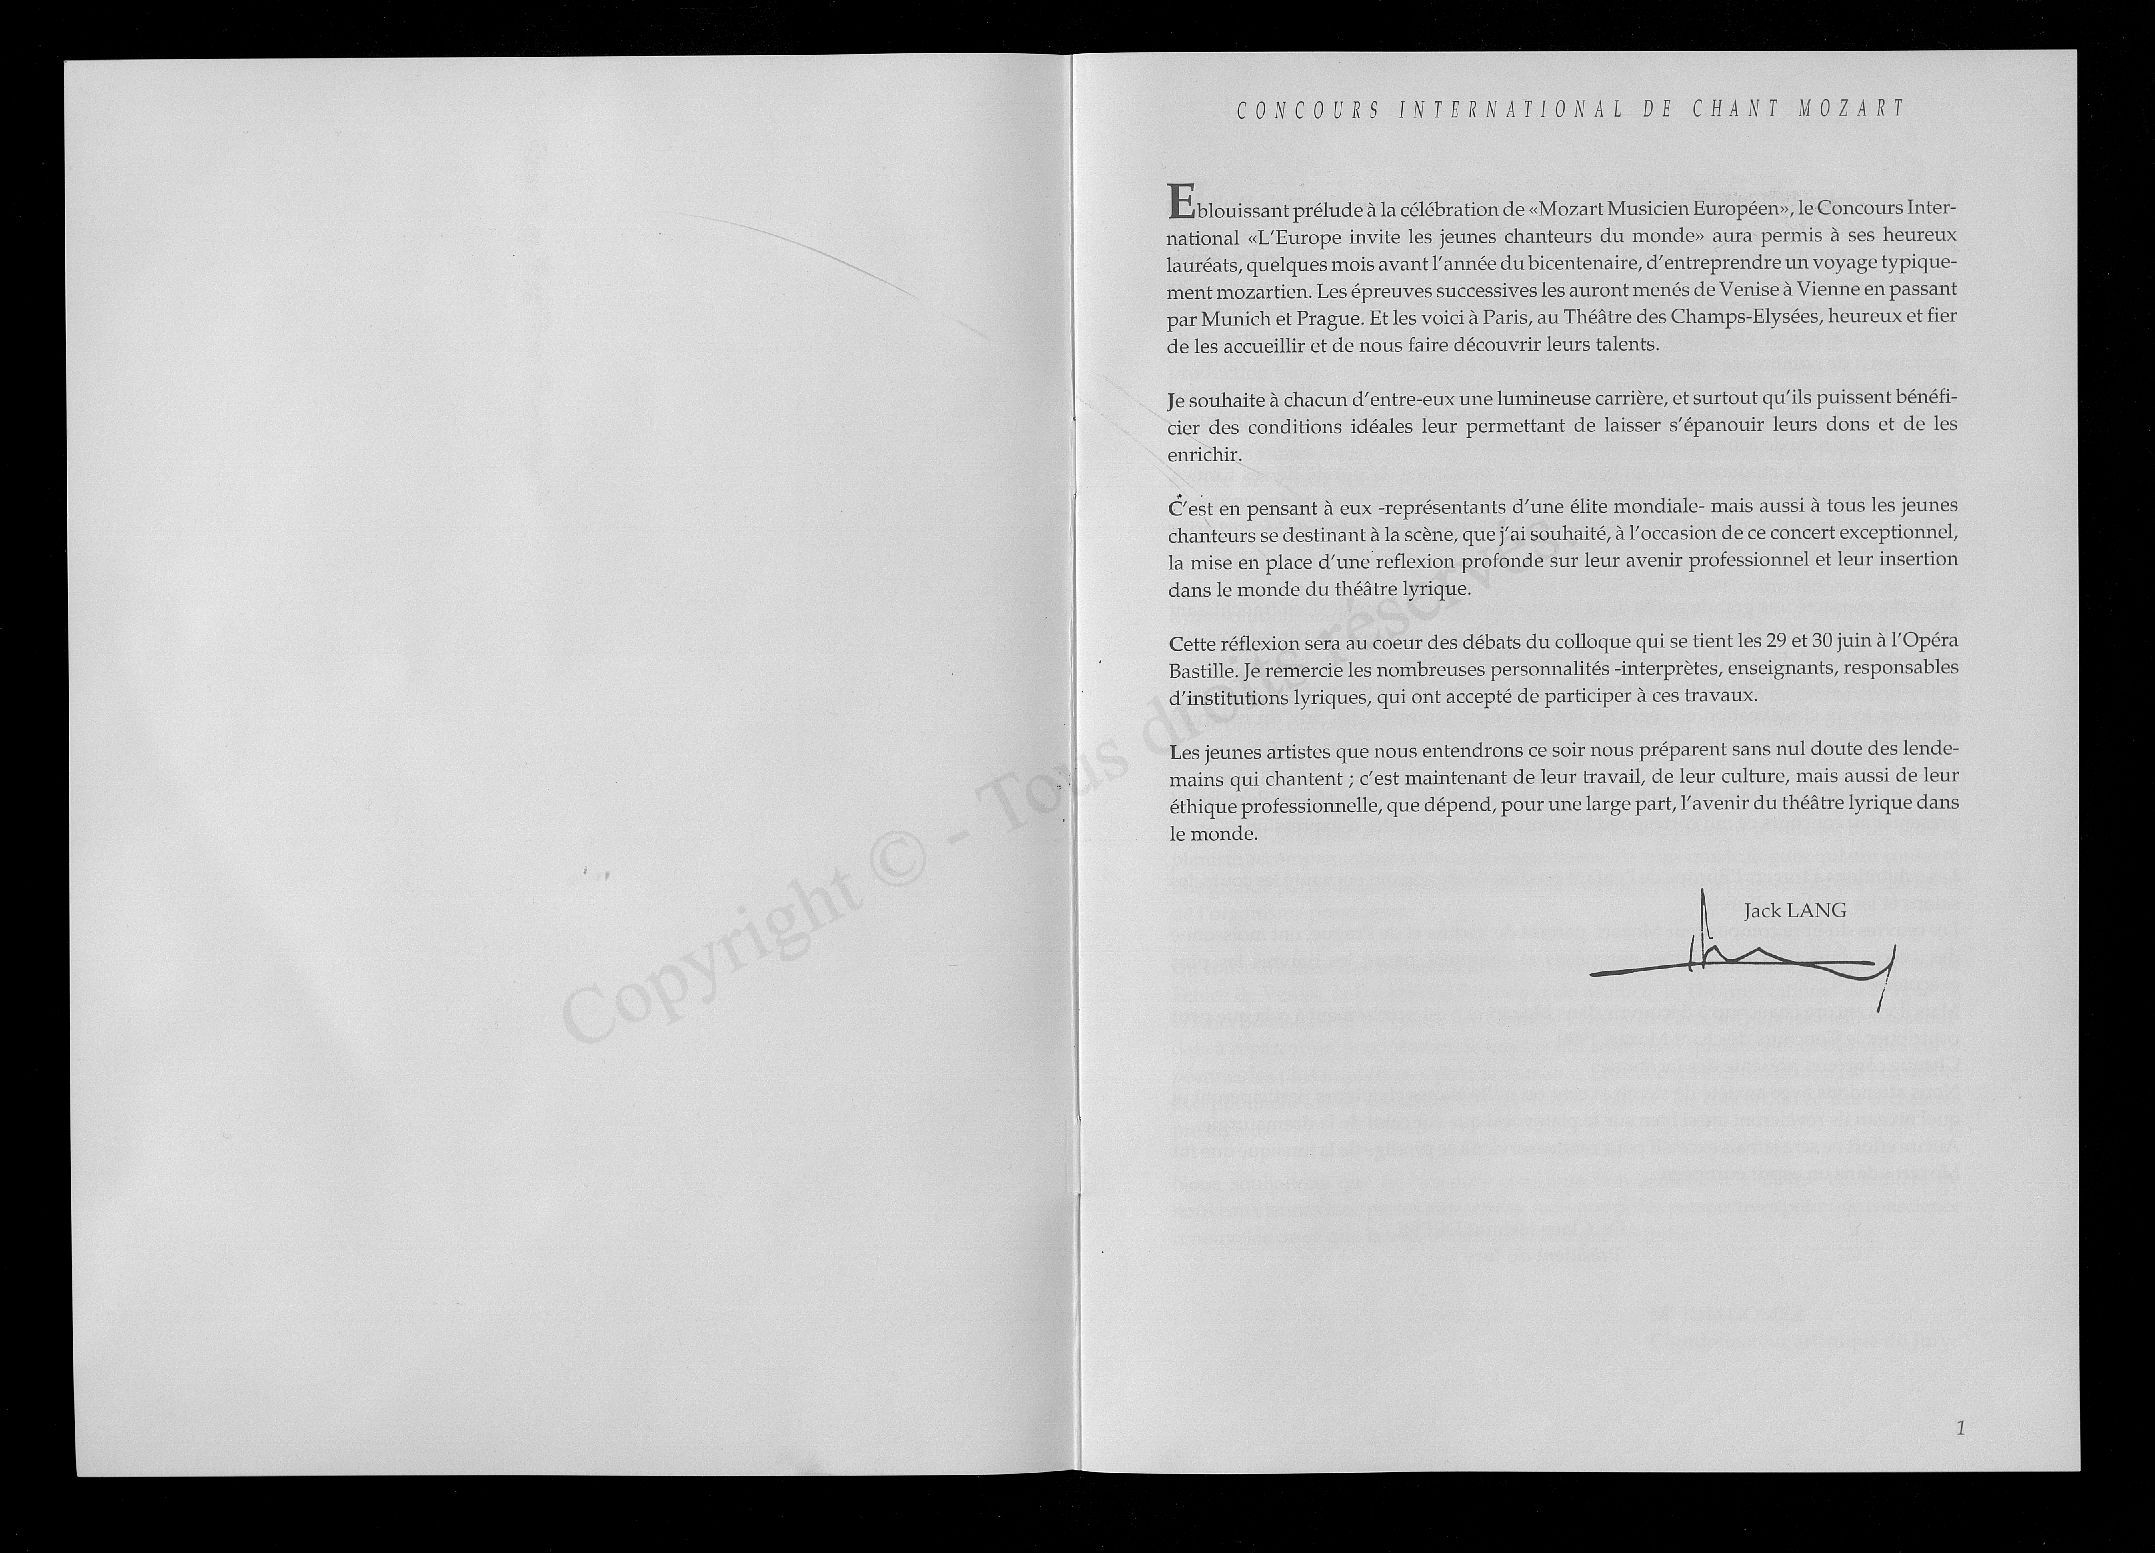 CONCOURS INTERNATIONAL DE CHANT MOZART
Eblouissant prélude à la célébration de «Mozart Musicien Européen», le Concours Inter-
national «L'Europe invite les jeunes chanteurs du monde» aura permis à ses heureux
lauréats, quelques mois avant l'année du bicentenaire, d'entreprendre un voyage typique-
ment mozartien. Les épreuves successives les auront menés de Venise à Vienne en passant
par Munich et Prague. Et les voici à Paris, au Théâtre des Champs-Elysées, heureux et fier
de les accueillir et de nous faire découvrir leurs talents.
Je souhaite à chacun d'entre-eux une lumineuse carrière, et surtout qu'ils puissent bénéfi-
cier des conditions idéales leur permettant de laisser s'épanouir leurs dons et de les
enrichir.
C'est en pensant à eux -représentants d'une élite mondiale- mais aussi à tous les jeunes
chanteurs se destinant à la scène, que j'ai souhaité, à l'occasion de ce concert exceptionnel,
la mise en place d'une reflexion profonde sur leur avenir professionnel et leur insertion
dans le monde du théâtre lyrique.
Cette réflexion sera au coeur des débats du colloque qui se tient les 29 et 30 juin à l'Opéra
Bastille. Je remercie les nombreuses personnalités -interprètes, enseignants, responsables
d'institutions lyriques, qui ont accepté de participer à ces travaux.
Les jeunes artistes que nous entendrons ce soir nous préparent sans nul doute des lende-
mains qui chantent ; c'est maintenant de leur travail, de leur culture, mais aussi de leur
éthique professionnelle, que dépend, pour une large part, l'avenir du théâtre lyrique dans
le monde.
Jack LANG
1
Copyright © - Tous droits réservés.